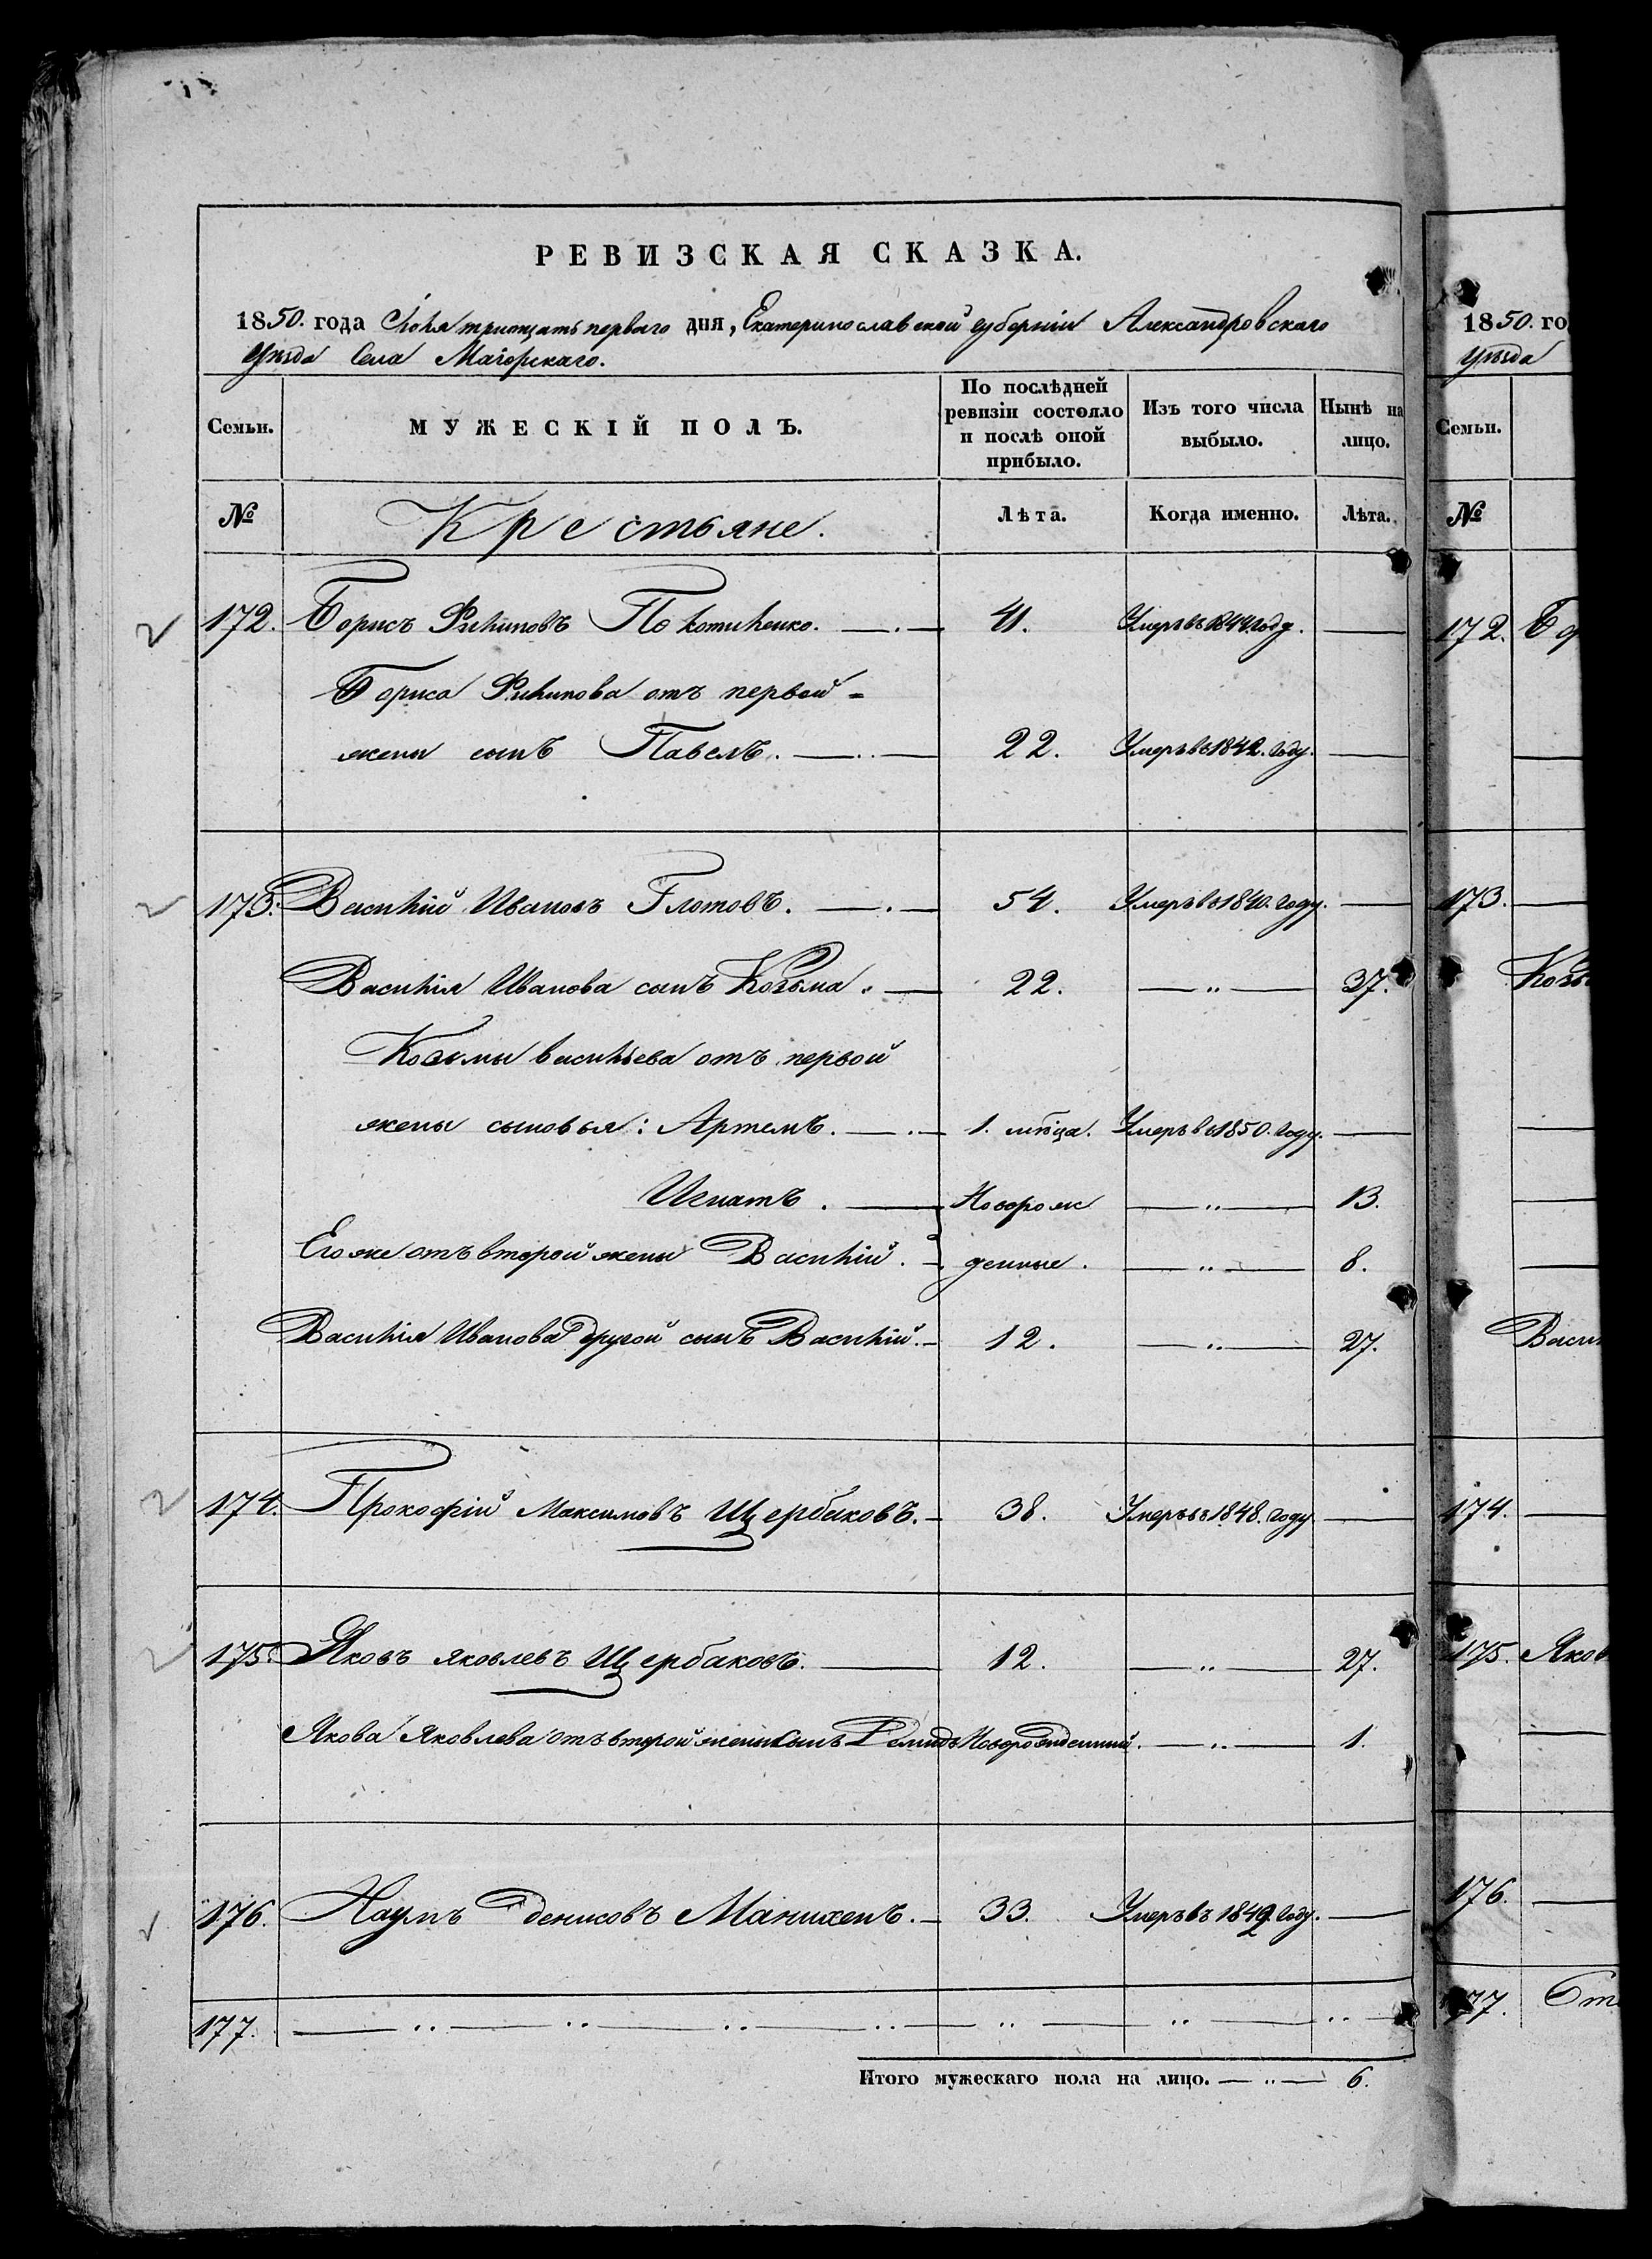 РЕВИЗСКАЯ СКАЗКА.
1850. года Іюля тридцать перваго дня, Екатеринославской губерніи Александровскаго
Уѣзда Села Маіорскаго.
Семьи. МУЖЕСКІЙ ПОЛЪ. По послѣдней ревизіи состояло и послѣ оной прибыло. Изъ того числа выбыло. Нынѣ на лицо.
№ Крестьяне. Лѣта. Когда именно. Лѣта.
172. Борисъ Филиповъ 41. Умеръ въ 1844 году. —
Бориса Филипова отъ первой
жены сынъ Павелъ. 22. Умеръ въ 1842. году. —
173. Василій Ивановъ Глотовъ. 54. Умеръ въ 1840. году. —
Василія Иванова сынъ Козьма. 22. — " — 37.
Козьмы Васильева отъ первой
жены сыновья: Артемъ. 1. мѣсца. Умеръ въ 1850. году. —
Игнатъ. Новорож — " — 13.
Его же отъ второй жены Василій. денные. — " — 8.
Василія Иванова другой сынъ Василій. 12. — " — 27.
174. Прокофій Максимовъ Щербаковъ. 38. Умеръ въ 1848. году —
175. Яковъ Яковлевъ Щербаковъ. 12. — " — 27.
Якова Яковлева отъ второй жены сынъ Демидъ Новорожденный. — " — 1.
176. Наумъ Денисовъ Манихенъ. 33. Умеръ въ 1849. году. —
177. — " — " — " — " — " — " — " —
Итого мужескаго пола на лицо. — " — 6.
1850. го
Уѣзда
Семьи.
№
172. Бо
173.
Козь
Васи
174.
175. Яков
176.
177.